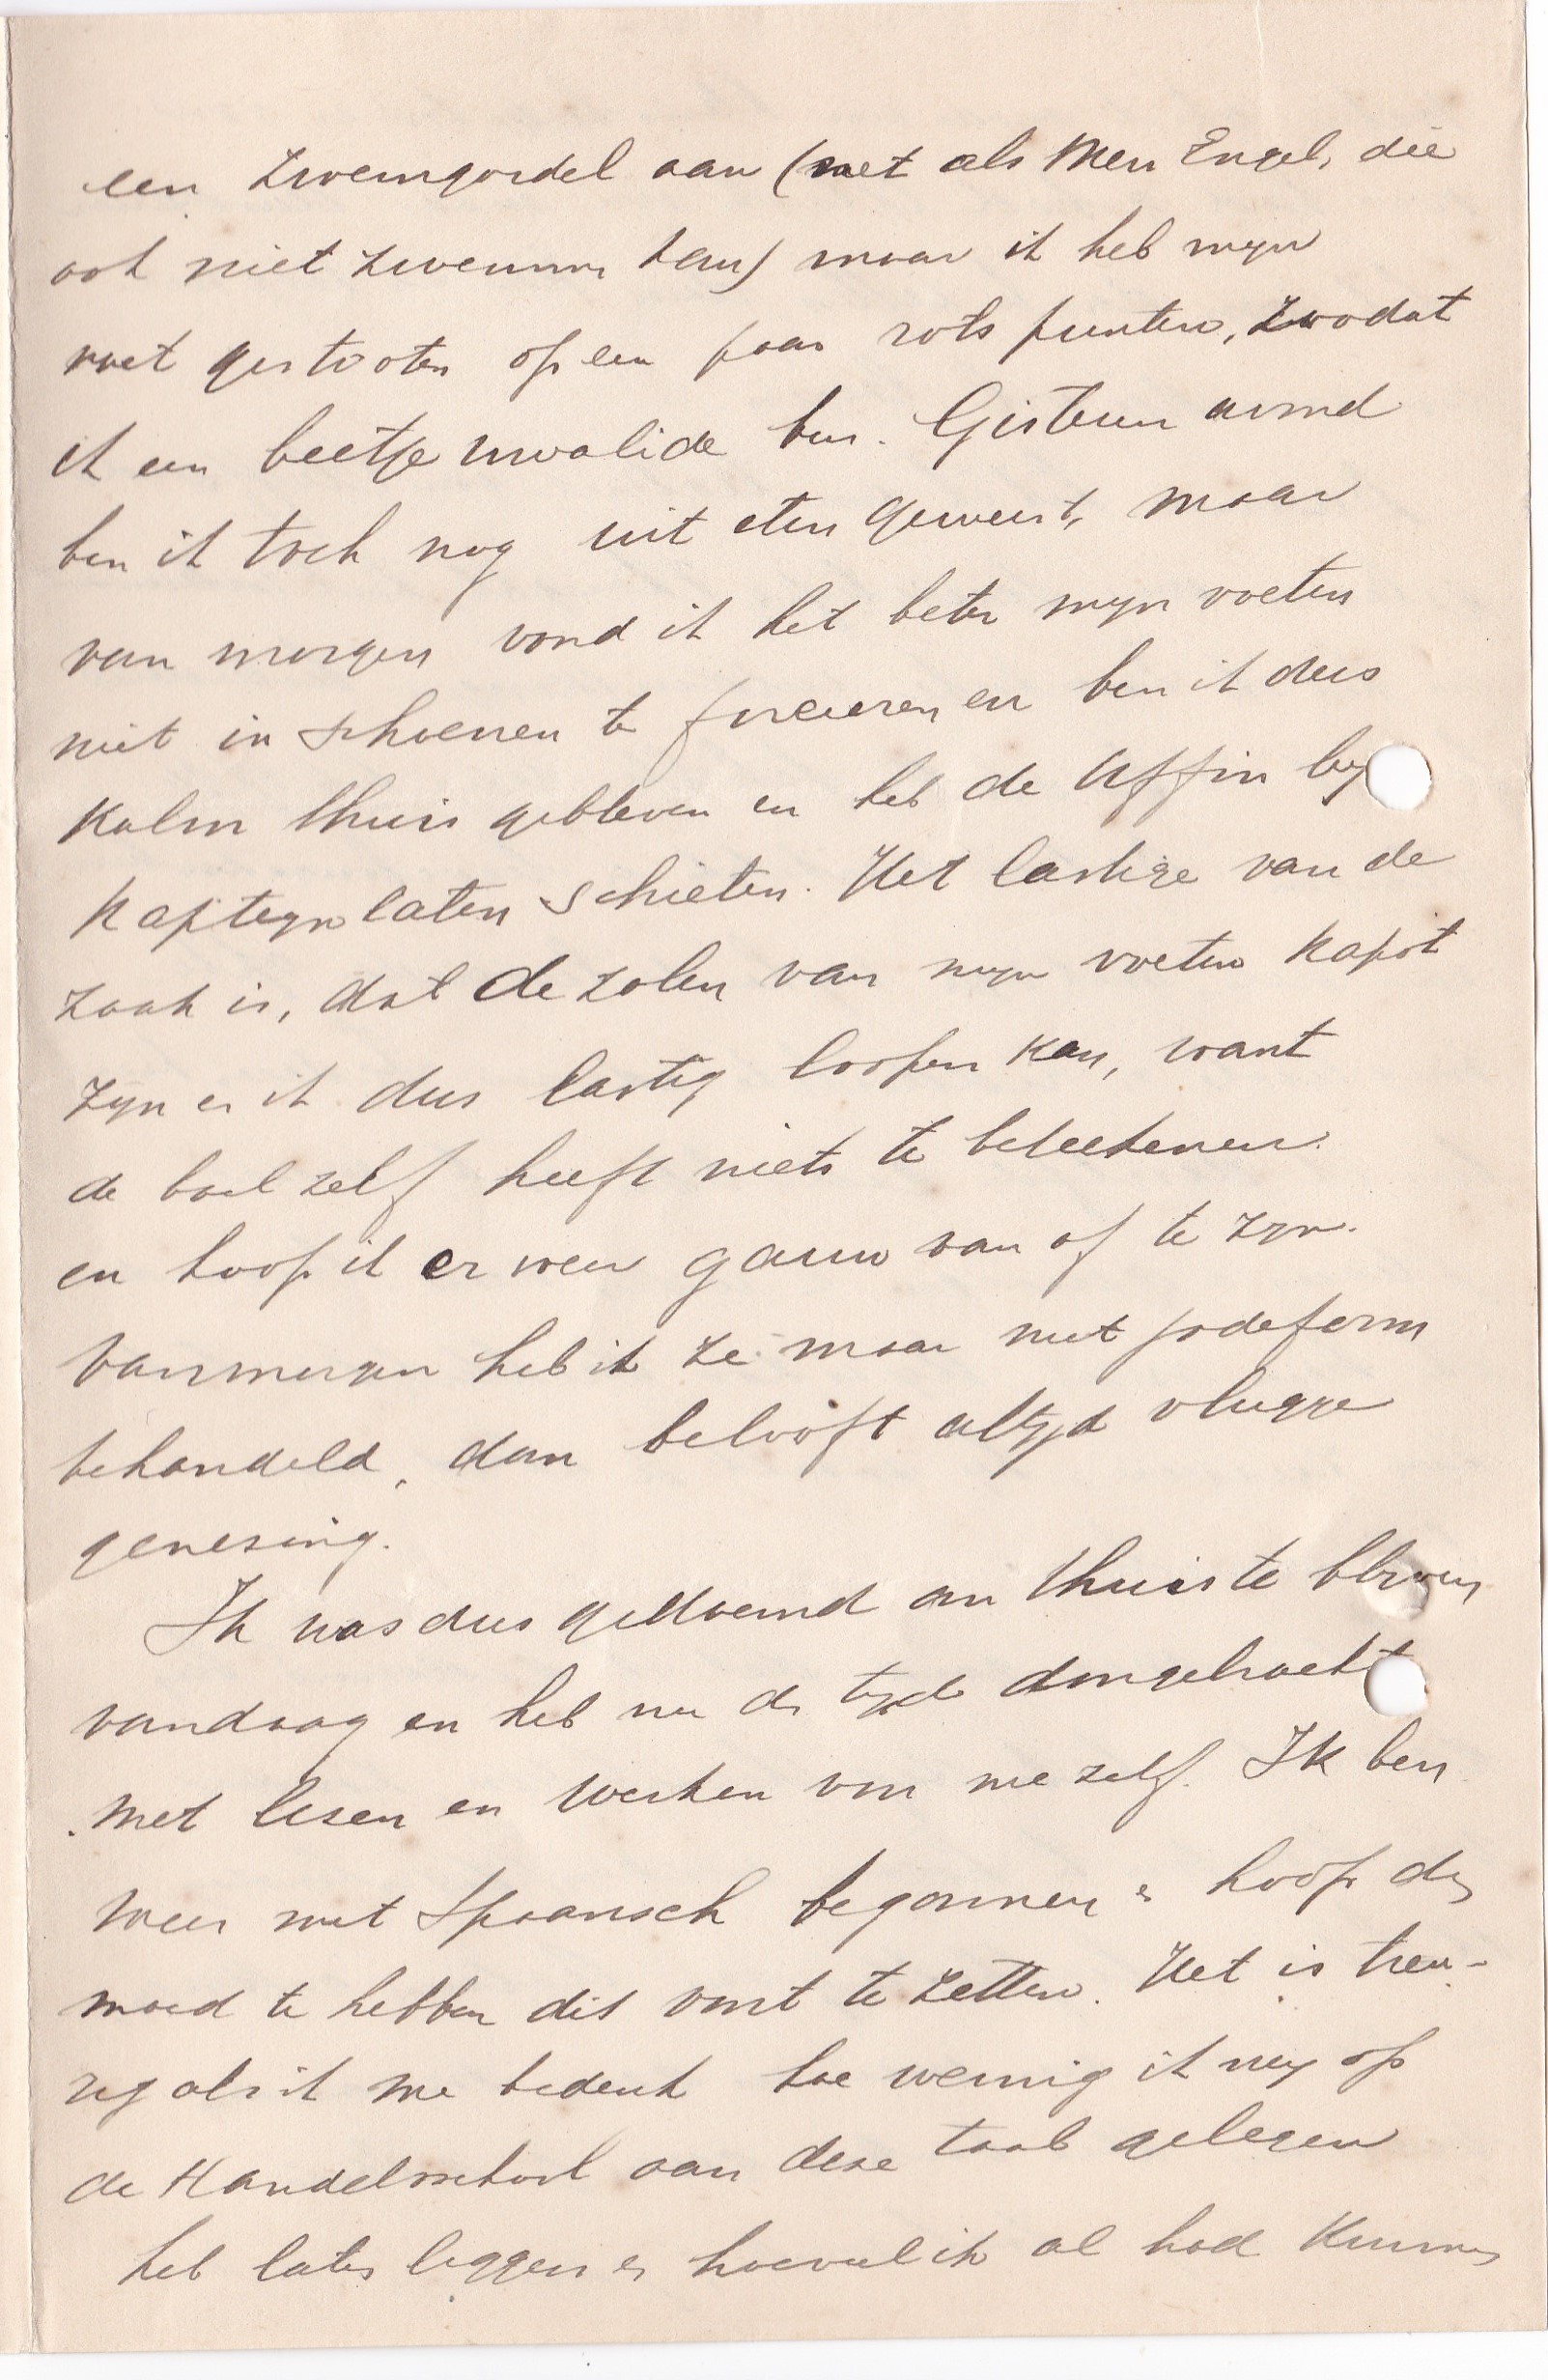 een zwemgordel aan (net als Mevr Engel, die
ook niet zwemmen kan) maar ik heb mijn
voet gestooten op een paar rots punten, zoodat
ik een beetje invalide ben. Gisteren avond
ben ik toch nog uit eten geweest, maar
van morgen vond ik het beter mijn voeten
niet in schoenen te forceeren en ben ik dus
kalm thuis gebleven en heb de by
Kapteyn laten schieten. Het lastige van de
zaak is, dat de zolen van mijn voeten kapot
zijn en ik dus lastig loopen kan, want
de boel zelf heeft niets te beteekenen.
en hoop ik er weer gauw van af te zijn.
Vanmorgen heb ik ze maar met jodeform
behandeld, dan belooft altijd vlugge
genezing.
Ik was dus gedoemd om thuis te blijven
vandaag en heb nu de tijd doorgebracht
met lezen en werken voor me zelf. Ik ben
weer met Spaansch begonnen en hoop den
moed te hebben dit voort te zetten. Het is treu-
rig als ik me bedenk hoe weinig ik mij op
de Handelsschool aan deze taal gelegen
heb laten liggen en hoeveel ik al had kunnen